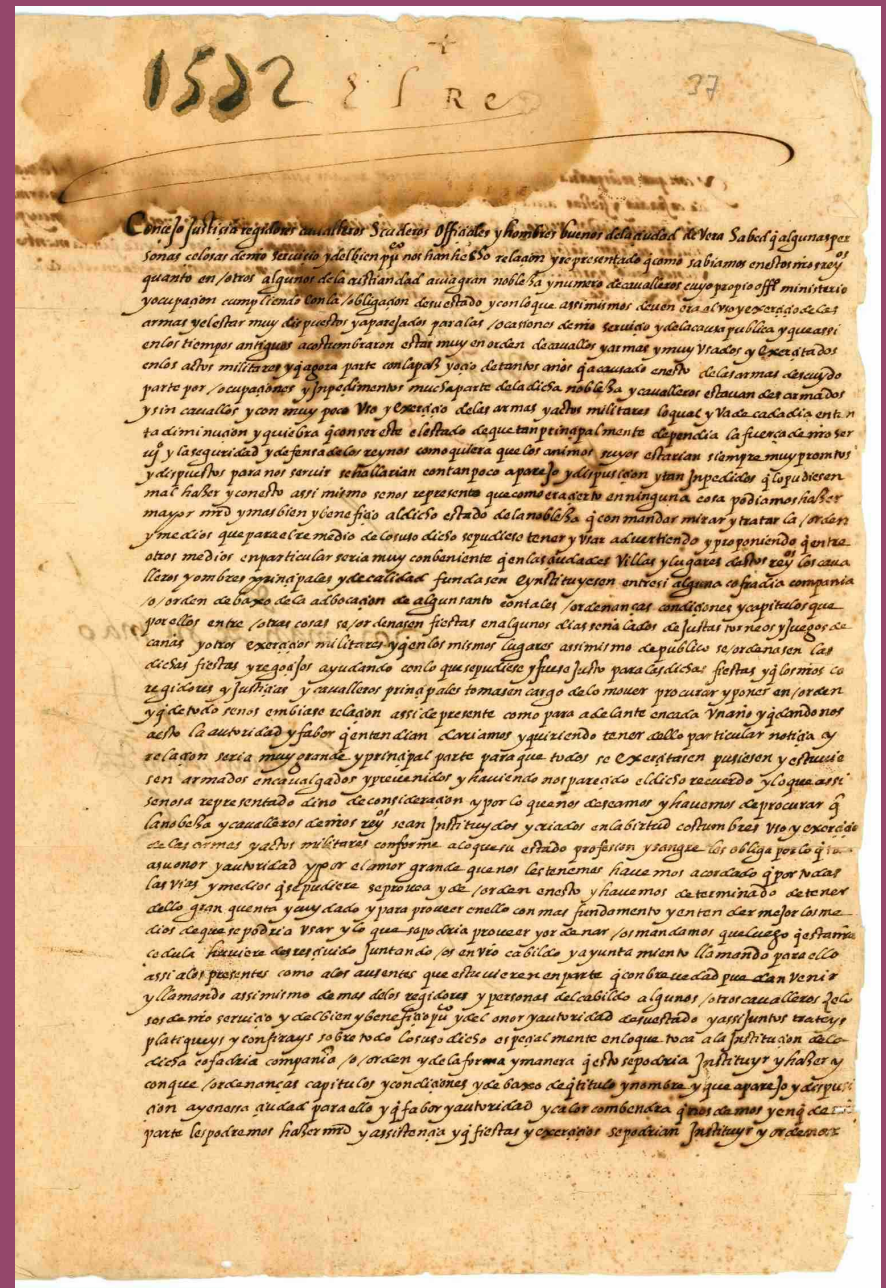 1572
El Re
37
Concejo Justicia regidores cavalleros Scuderos Officiales y hombres buenos dela ciudad de Vera Sabed q̃ algunas per
sonas celosas de nr̃o servicio y del bien pu^co nos han hecho relacion y representado q̃ como sabiamos en estos nr̃os rey^os
quanto en /otros algunos de la cristiandad avia gran nobleza y numero de cavalleros cuyo propio off^o ministerio
y ocupacion cumpliendo con la /obligacion de su estado y con lo que assi mismos deven era el uso y exercicio de las
armas y el estar muy dispuestos y aparejados para las /ocasiones de nr̃o servicio y de la causa publica y que assi
en los tiempos antiguos acostumbraron estar muy en orden de cavallos y armas y muy Usados y Exercitados
en los actos militares y q̃ agora parte con la paz y ocio de tantos años q̃ a causado en esto de las armas descuydo
parte por /ocupaciones y Inpedimentos mucha parte de la dicha nobleza y cavalleros estavan desarmados
y sin cavallos y con muy poco Uso y Exercicio de las armas y actos militares lo qual y Va de cada dia en tan
ta diminucion y quiebra q̃ con ser este el estado de que tan principalmente dependia la fuerça de nr̃o ser
vi^o y la seguridad y defensa de los reynos como quiera que los animos suyos estarian siempre muy promtos
y dispuestos para nos servir se hallarian con tan poco aparejo y dispusicion y tan Inpedidos q̃ lo pudiesen
mal hazer y con esto assi mismo se nos represento que como era cierto en ninguna cosa podiamos hazer
mayor mrd y mas bien y beneficio al dicho estado de la nobleza q̃ con mandar mirar y tratar la /orden
y medios que para el remedio de lo suso dicho se pudiese tener y Usar advirtiendo y proponiendo q̃ entre
otros medios en particular seria muy conbeniente q̃ en las ciudades Villas y lugares destos rey^os los cava
lleros y ombres principales y de calidad fundasen E ynstituyesen entre si alguna cofradia compania
/o /orden debaxo de la advocacion de algun santo con tales /ordenanças condiciones y capitulos que
por ellos entre /otras cosas se /ordenasen fiestas en algunos dias señalados de Justas torneos y Juegos de
cañas y otros exercicios militares y q̃ en los mismos lugares assi mismo de publico se /ordenasen las
dichas fiestas y regocijos ayudando con lo que se pudiese y fuese Justo para las dichas fiestas y q̃ los nr̃os co
regidores y Justicias y cavalleros principales tomasen cargo de lo mover procurar y poner en /orden
y q̃ de todo se nos embiase relacion assi de presente como para adelante en cada Un año y q̃ dando nos
a esto la autoridad y fabor q̃ entendian dariamos y quiriendo tener dello particular noticia y
relacion seria muy grande y principal parte para que todos se exercitasen pusiesen y estuvie
sen armados encavalgados y prevenidos y haviendo nos parecido el dicho recuerdo y lo que assi
se nos a representado dino de consideracion y por lo que nos deseamos y havemos de procurar q̃
la nobleza y cavalleros de nr̃os rey^os sean Instituydos y criados en la birtud costumbres Uso y exercicio
de las armas y actos militares conforme a lo que su estado profesion y sangre los obliga por lo q̃
a su onor y autoridad y por el amor grande que nos les tenemos havemos acordado q̃ por todas
las vias y medios q̃ se pudiere se provea y de /orden en esto y havemos determinado de tener
dello gran quenta y cuydado y para proveer en ello con mas fundamento y entender mejor los me
dios de que se podria Usar y lo que se podria proveer y ordenar /os mandamos que luego q̃ esta nr̃a
cedula huviere des resçivido Juntando /os en Vr̃o cabildo y ayuntamiento llamando para ello
assi a los presentes como a los ausentes que estuvieren en parte q̃ con brevedad puedan Venir
y llamando assimismo demas de los regidores y personas del cabildo algunos /otros cavalleros Zelo
sos de nr̃o servicio y del bien y beneficio pu^co y del onor y autoridad de su estado y assi Juntos trateys
platiqueys y confirays sobre todo lo suso dicho especialmente en lo que toca a la Institucion de la
dicha cofadria compania /o /orden y de la forma y manera q̃ esto se podria Instituyr y hazer y
con que /ordenanças capitulos y condiciones y debaxo de q̃ titulo y nombre y que aparejo y dispusi
cion ay en essa ciudad para ello y q̃ fabor y autoridad y calor combendra q̃ nos demos y en q̃ de nr̃a
parte les podremos hazer mrd y assistencia y q̃ fiestas y exercicios se podrian Instituyr y ordenar